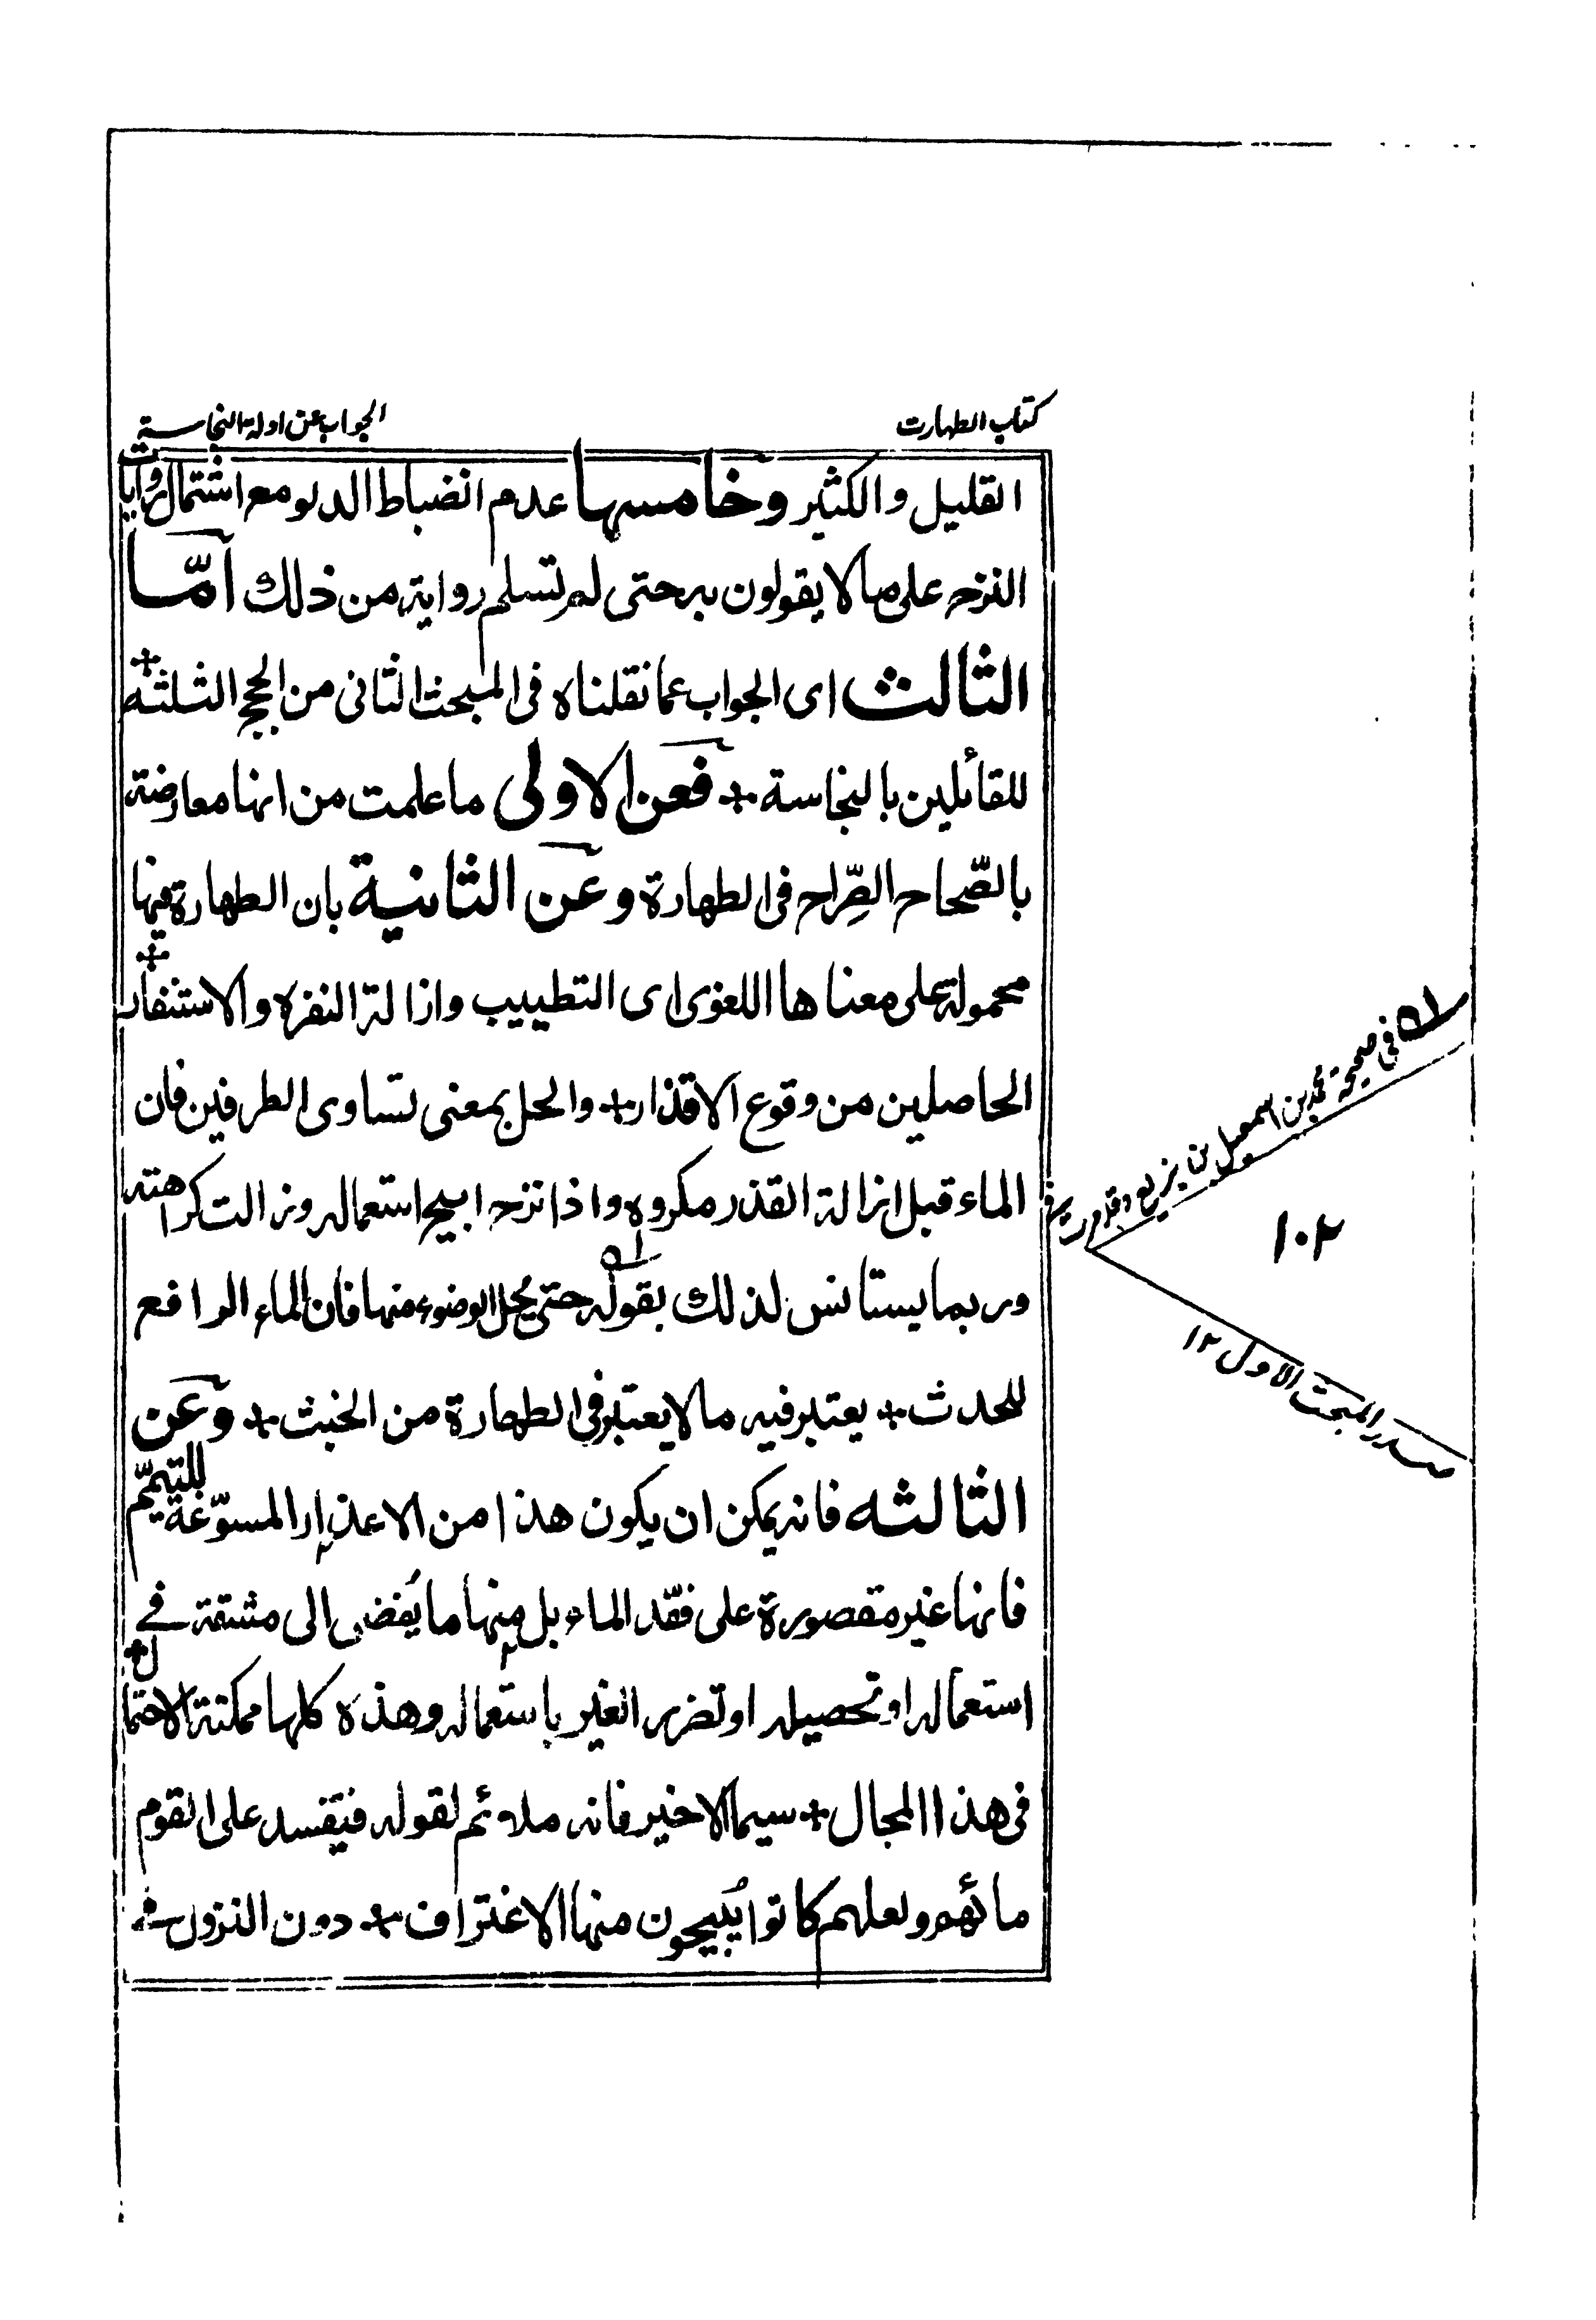 كتاب الطهارت
الجواب عن ادلة النجاسة
القليل والكثير وخامسها عدم انضباط الدلو مع اشتمال روايات
النزح على ما لا يقولون به حتى لم تسلم رواية من ذلك امّا
الثالث اى الجواب عما نقلناه فى المبحث الثانى من الحجج الثلثه +
للقائلين بالنجاسة + فعن الاولى ما علمت من انها معارضة
بالصّحاح الصِّراح فى الطهارة وعن الثانية بان الطهارة فيها
محمولة على معناها اللغوى اى التطييب وازالة النفرة والاستنفار +
الحاصلين من وقوع الاقذار + والحل بمعنى تساوى الطرفين فان
الماء قبل ازالة القذر مكروه واذا نزح ابيح استعماله وزالت كراهته
وربما يستانس لذلك بقوله حتى يحل الوضوء منها فان الماء الرافع
للحدث + يعتبر فيه ما لا يعتبر فى الطهارة من الخبث + وعن
الثالثه فانه يمكن ان يكون هذا من الاعذار المسوّغة للتيمّم
فانها غير مقصورة على فقد الماء بل منها ما يُفضى الى مشقة فے
استعماله او تحصيله او تضرر الغير باستعماله وهذه كلها ممكنة الاحتمال +
فى هذا المجال + سيما الاخير فانه ملائم لقوله فيفسد على القوم
مائهم ولعلهم كانوا يُبيحون منها الاغتراف + دون النزول +
فى صحيحة محمد بن اسمعيل بن بزيع وقد مر فى
صدر المبحث الاول ١٢
١٠٢